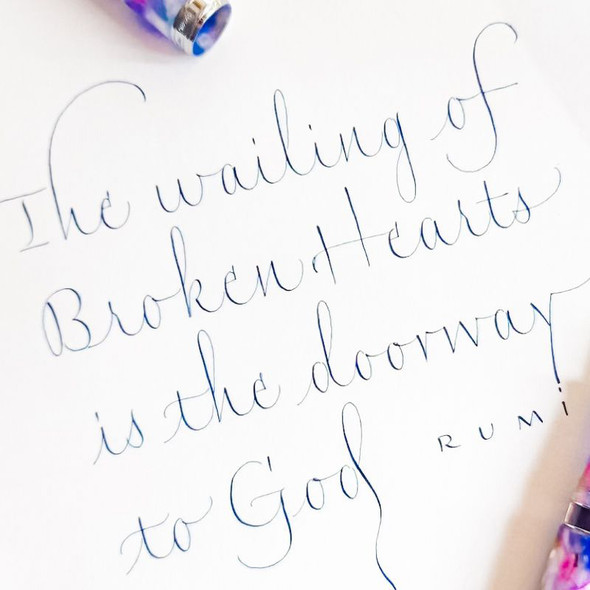 The wailing of
Broken Hearts
is the doorway
to God
RUMi